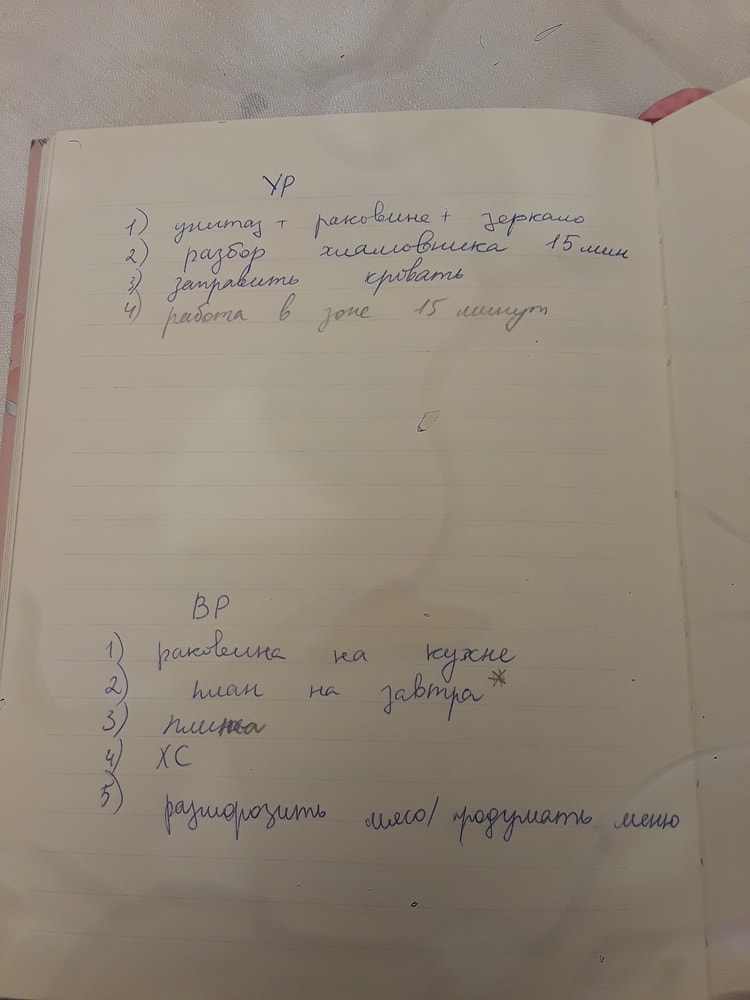 УР
1) унитаз + раковина + зеркало
2) разбор хламовника 15 мин
3) заправить кровать
4) работа в зоне 15 минут
ВР
1) раковина на кухне
2) план на завтра *
3) плита
4) ХС
5) разморозить мясо/ продумать меню